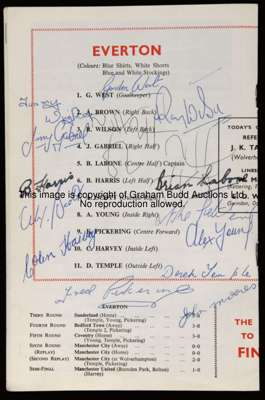 EVERTON
(Colours: Blue Shirts, White Shorts
Blue and White Stockings)
Gordon West
1. G. WEST (Goalkeeper)
2. A. BROWN (Right Back)
Ray Wilson
3. R. WILSON (Left Back)
Jimmy Gabriel
4. J. GABRIEL (Right Half)
5. B. LABONE (Centre Half) Captain
B Harris
6. B. HARRIS (Left Half)
Brian Labone
This image is copyright of Graham Budd Auctions Ltd
No reproduction allowed.
8. A. YOUNG (Inside Right)
Alex Young
9. F. PICKERING (Centre Forward)
Colin Harvey
10. C. HARVEY (Inside Left)
11. D. TEMPLE (Outside Left)
Derek Temple
Fred Pickering
EVERTON
THIRD ROUND Sunderland (Home) 3-0
(Temple, Young, Pickering)
FOURTH ROUND Bedford Town (Away) 3-0
(Temple 2, Pickering)
FIFTH ROUND Coventry (Home) 3-0
(Young, Temple, Pickering)
SIXTH ROUND Manchester City (Away) 0-0
(REPLAY) Manchester City (Home) 0-0
(SECOND REPLAY) Manchester City (at Wolverhampton) 2-0
(Temple, Pickering)
SEMI-FINAL Manchester United (Burnden Park, Bolton) 1-0
(Harvey)
TODAY'S
REFER
J. K. TA
(Wolverh
LINES
THE
TO
FIN